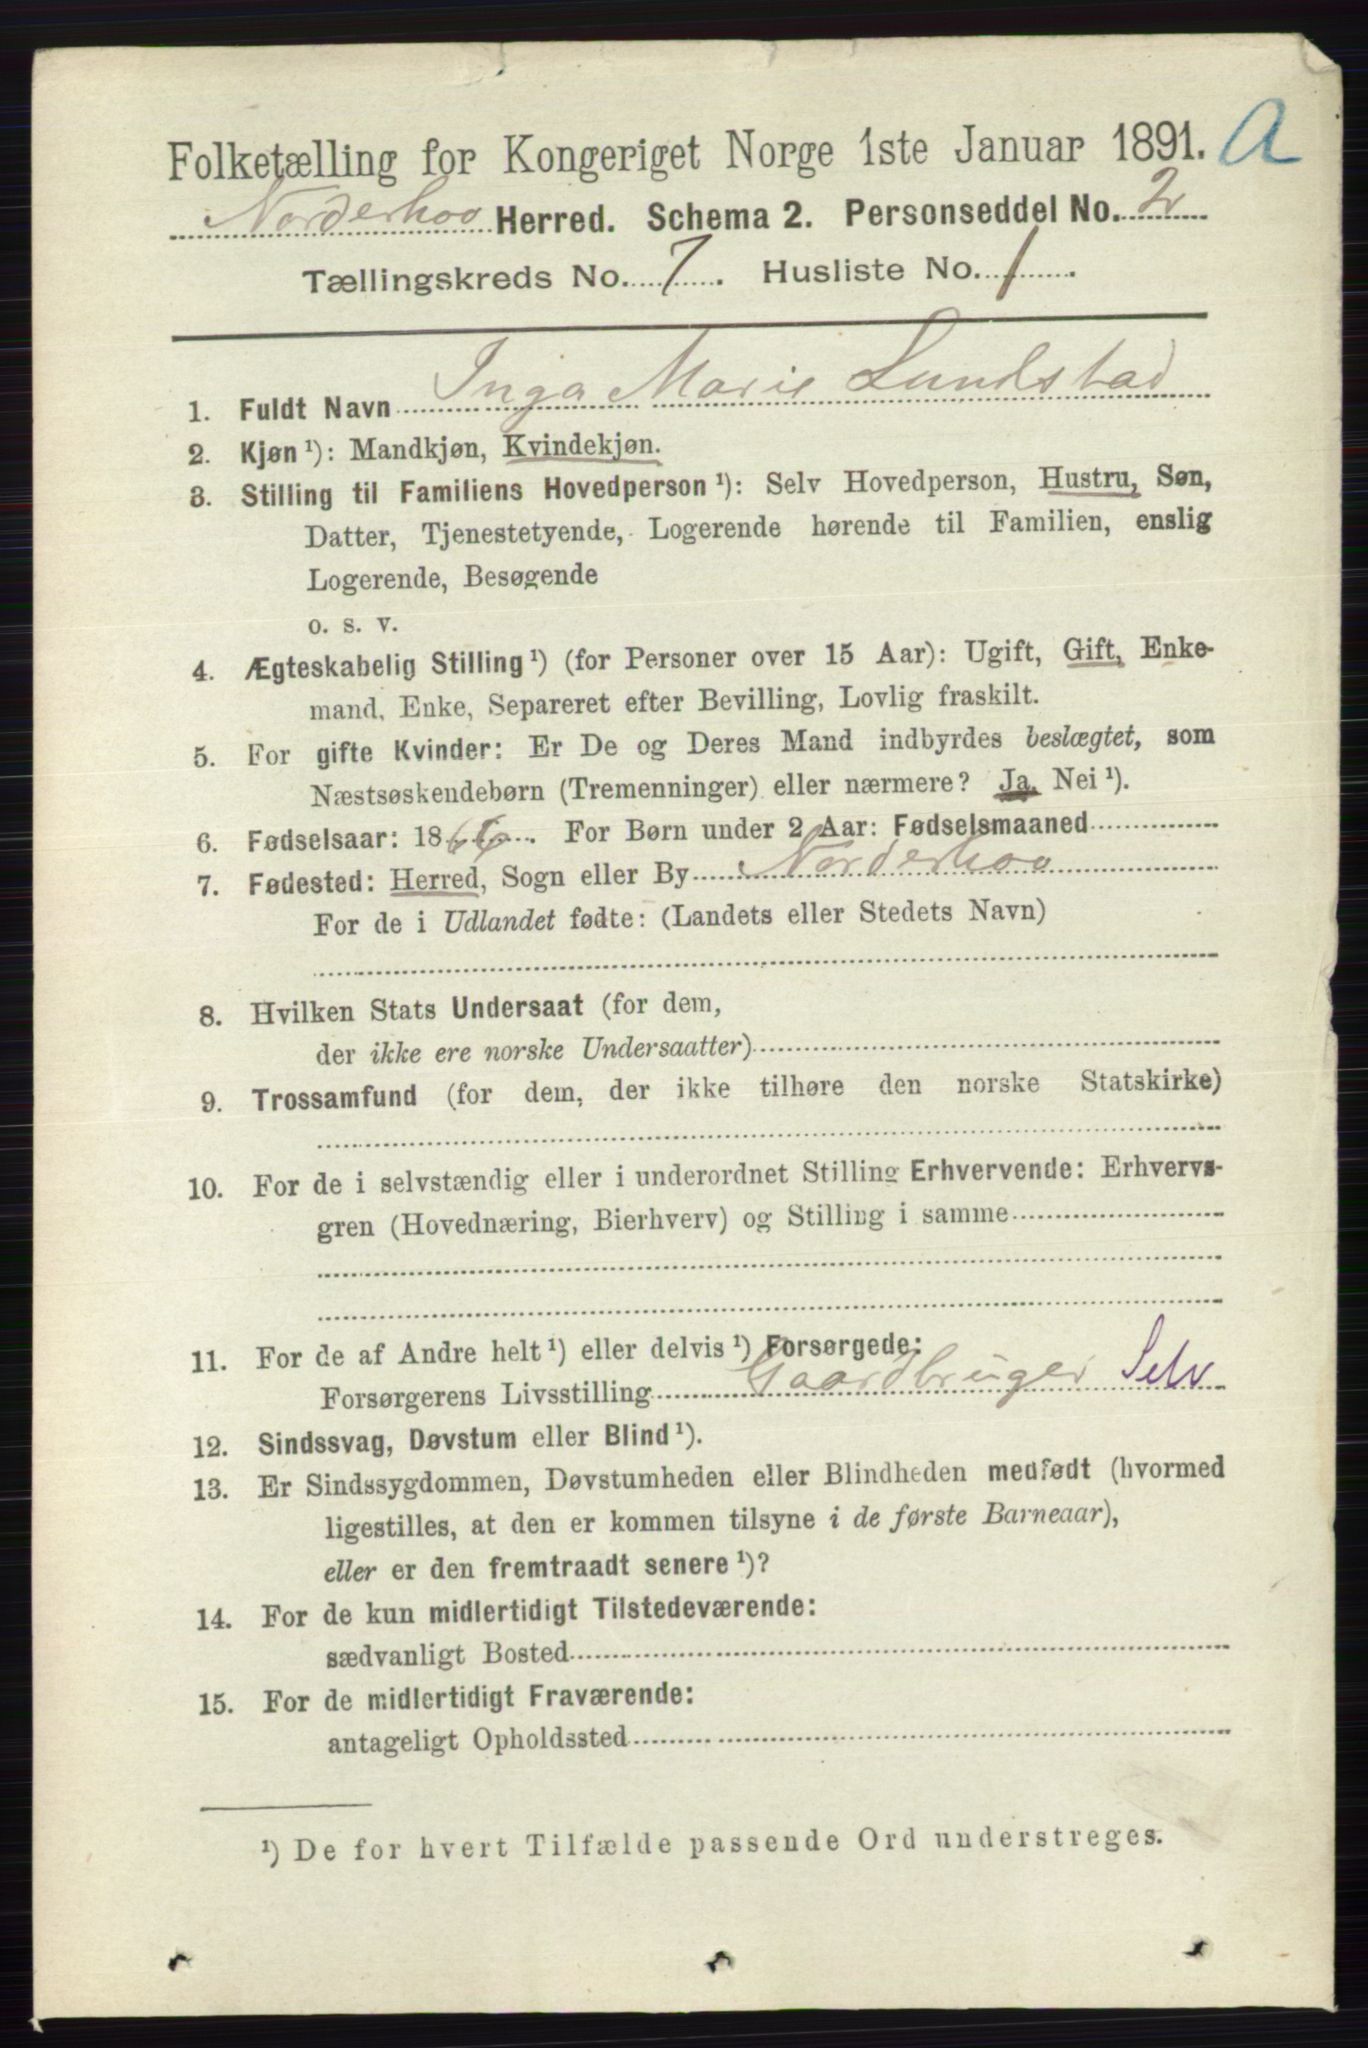 Folketælling for Kongeriget Norge 1ste Januar 1891. A
Norderhoo Herred. Schema 2. Personseddel No. 2
Tællingskreds No. 7. Husliste No. 1.
1. Fuldt Navn Inga Marie Lundstad
2. Kjøn ¹): Mandkjøn, Kvindekjøn.
3. Stilling til Familiens Hovedperson ¹): Selv Hovedperson, Hustru, Søn,
Datter, Tjenestetyende, Logerende hørende til Familien, enslig
Logerende, Besøgende
o. s. v.
4. Ægteskabelig Stilling ¹) (for Personer over 15 Aar): Ugift, Gift, Enke-
mand, Enke, Separeret efter Bevilling, Lovlig fraskilt.
5. For gifte Kvinder: Er De og Deres Mand indbyrdes beslægtet, som
Næstsøskendebørn (Tremenninger) eller nærmere? Ja, Nei ¹).
6. Fødselsaar: 1866. For Børn under 2 Aar: Fødselsmaaned
7. Fødested: Herred, Sogn eller By Norderhoo
For de i Udlandet fødte: (Landets eller Stedets Navn)
8. Hvilken Stats Undersaat (for dem,
der ikke ere norske Undersaatter)
9. Trossamfund (for dem, der ikke tilhøre den norske Statskirke)
10. For de i selvstændig eller i underordnet Stilling Erhvervende: Erhvervs-
gren (Hovednæring, Bierhverv) og Stilling i samme
11. For de af Andre helt ¹) eller delvis ¹) Forsørgede:
Forsørgerens Livsstilling Gaardbruger Selv
12. Sindssvag, Døvstum eller Blind ¹).
13. Er Sindssygdommen, Døvstumheden eller Blindheden medfødt (hvormed
ligestilles, at den er kommen tilsyne i de første Barneaar),
eller er den fremtraadt senere ¹)?
14. For de kun midlertidigt Tilstedeværende:
sædvanligt Bosted
15. For de midlertidigt Fraværende:
antageligt Opholdssted
¹) De for hvert Tilfælde passende Ord understreges.